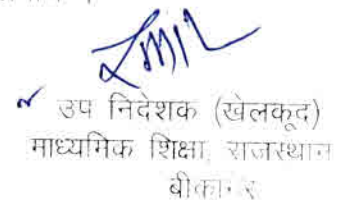 उप निदेशक (खेलकूद)
माध्यमिक शिक्षा, राजस्थान
बीकानेर